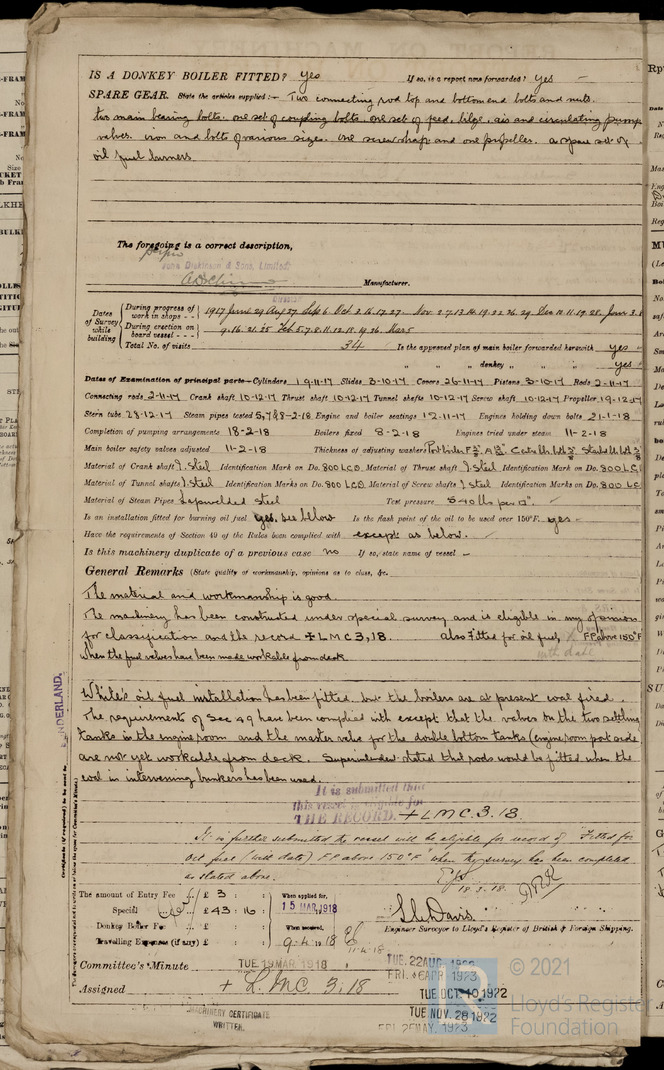 IS A DONKEY BOILER FITTED? Yes If so, is a report now forwarded? Yes
SPARE GEAR. State the articles supplied:— Two connecting rod top and bottom end bolts and nuts.
two main bearing bolts. one set of coupling bolts. one set of feed, bilge, air and circulating pump
valves. iron and bolts of various sizes. one screw shaft and one propeller. a spare set of
oil fuel burners.
The foregoing is a correct description,
John Dickinson & Sons, Limited.
Manufacturer.
Director
Dates of Survey while building
During progress of work in shops - - 1917 June 29 Aug 27 Sep 6 Oct 2. 16. 17. 27 Nov. 2. 7. 13. 14. 19. 22. 26. 29. Dec 10. 11. 19. 28.
During erection on board vessel - - - 9. 16. 21. 25 Feb 5. 7. 8. 11. 12. 18. 19. 26. Mar 5
Total No. of visits 34 Is the approved plan of main boiler forwarded herewith Yes
" " " donkey " " Yes
Dates of Examination of principal parts—Cylinders 19-11-17 Slides 3-10-17 Covers 26-11-17 Pistons 3-10-17 Rods 2-11-17
Connecting rods 2-11-17 Crank shaft 10-12-17 Thrust shaft 10-12-17 Tunnel shafts 10-12-17 Screw shaft 10-12-17 Propeller 19-12-17
Stern tube 28-12-17 Steam pipes tested 5, 7 & 8-2-18 Engine and boiler seatings 12-11-17 Engines holding down bolts 21-1-18
Completion of pumping arrangements 18-2-18 Boilers fixed 8-2-18 Engines tried under steam 11-2-18
Main boiler safety valves adjusted 11-2-18 Thickness of adjusting washers
Material of Crank shaft I. Steel Identification Mark on Do. 800 LCD Material of Thrust shaft I Steel Identification Mark on Do. 800 LC
Material of Tunnel shafts I Steel Identification Marks on Do. 800 LCD Material of Screw shafts I Steel Identification Marks on Do. 800 LC
Material of Steam Pipes Lapwelded Steel Test pressure 540 lbs per □".
Is an installation fitted for burning oil fuel Yes. see below Is the flash point of the oil to be used over 150°F. yes
Have the requirements of Section 49 of the Rules been complied with except as below.
Is this machinery duplicate of a previous case no If so, state name of vessel
General Remarks (State quality of workmanship, opinions as to class, &c.
The material and workmanship is good.
The machinery has been constructed under special survey and is eligible in my opinion
for classification and the record + LMC 3, 18. also Fitted for oil fuel F.P. above 150°F
when the fuel valves have been made workable from deck.
with date
White's oil fuel installation has been fitted, but the boilers are at present coal fired.
The requirements of Sec 49 have been complied with except that the valves on the two settling
tanks in the engine room and the master valve for the double bottom tanks (engine room port side)
are not yet workable from deck. Superintendent stated that rods would be fitted when the
coal in intervening bunkers has been used.
SUNDERLAND.
It is submitted that
this vessel is eligible for
THE RECORD. + LMC. 3. 18.
It is further submitted the vessel will be eligible for record of "Fitted for
oil fuel (with date) F.P. above 150°F" when the survey has been completed
as stated above.
18. 3. 18.
The amount of Entry Fee ... £ 3 : : When applied for,
Special ... £ 43 : 16 : 15 MAR. 1918
Donkey Boiler Fee £ : : When received,
Travelling Expenses (if any) £ : : 9. 4. 1918
11. 4. 18
Davis
Engineer Surveyor to Lloyd's Register of British & Foreign Shipping.
Committee's Minute TUE. 19 MAR. 1918
TUE. 22 AUG 1922
FRI. 6 APR 1923
Assigned + LMC 3. 18
TUE. OCT. 10 1922
TUE. NOV. 28 1922
FRI. 25 MAY. 1923
MACHINERY CERTIFICATE
WRITTEN.
© 2021
Lloyd's Register
Foundation